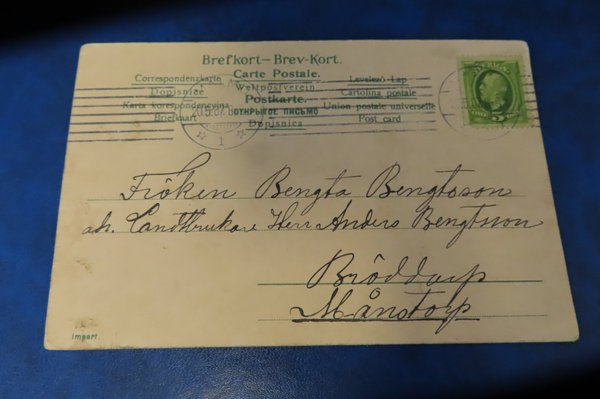 Brefkort–Brev-Kort.
Correspondenzkarte Carte Postale. Levelező-Lap
Dopisnice Weltpostverein Cartolina postale
Karta korespondencyjna Postkarte. Union postale universelle
Briefkaart ОТКРЫТОЕ ПИСЬМО Post card
Dopisnica
5.07
1
5
Fröken Bengta Bengtsson
adr. Landtbrukare Herr Anders Bengtsson
Bröddarp
Månstorp
Import.